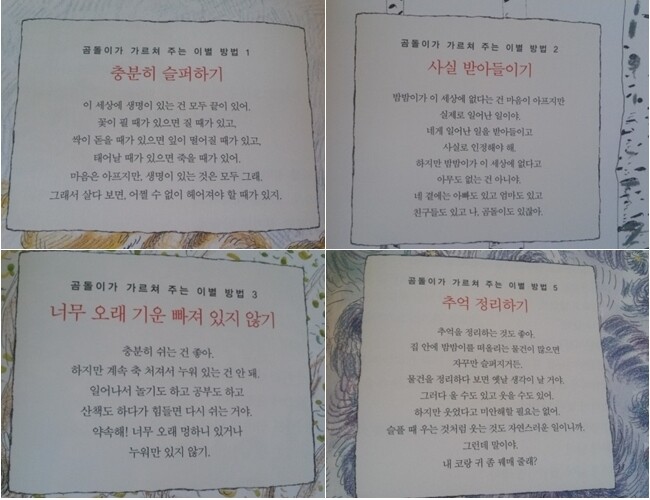 곰돌이가 가르쳐 주는 이별 방법 1
충분히 슬퍼하기
이 세상에 생명이 있는 건 모두 끝이 있어.
꽃이 필 때가 있으면 질 때가 있고,
싹이 돋을 때가 있으면 잎이 떨어질 때가 있고,
태어날 때가 있으면 죽을 때가 있어.
마음은 아프지만, 생명이 있는 것은 모두 그래.
그래서 살다 보면, 어쩔 수 없이 헤어져야 할 때가 있지.
곰돌이가 가르쳐 주는 이별 방법 2
사실 받아들이기
밤밤이가 이 세상에 없다는 건 마음이 아프지만
실제로 일어난 일이야.
네게 일어난 일을 받아들이고
사실로 인정해야 해.
하지만 밤밤이가 이 세상에 없다고
아무도 없는 건 아니야.
네 곁에는 아빠도 있고 엄마도 있고
친구들도 있고 나, 곰돌이도 있잖아.
곰돌이가 가르쳐 주는 이별 방법 3
너무 오래 기운 빠져 있지 않기
충분히 쉬는 건 좋아.
하지만 계속 축 처져서 누워 있는 건 안 돼.
일어나서 놀기도 하고 공부도 하고
산책도 하다가 힘들면 다시 쉬는 거야.
약속해! 너무 오래 멍하니 있거나
누워만 있지 않기.
곰돌이가 가르쳐 주는 이별 방법 5
추억 정리하기
추억을 정리하는 것도 좋아.
집 안에 밤밤이를 떠올리는 물건이 많으면
자꾸만 슬퍼지거든.
물건을 정리하다 보면 옛날 생각이 날 거야.
그러다 울 수도 있고 웃을 수도 있어.
하지만 웃었다고 미안해할 필요는 없어.
슬플 때 우는 것처럼 웃는 것도 자연스러운 일이니까.
그런데 말이야.
내 코랑 귀 좀 꿰매 줄래?